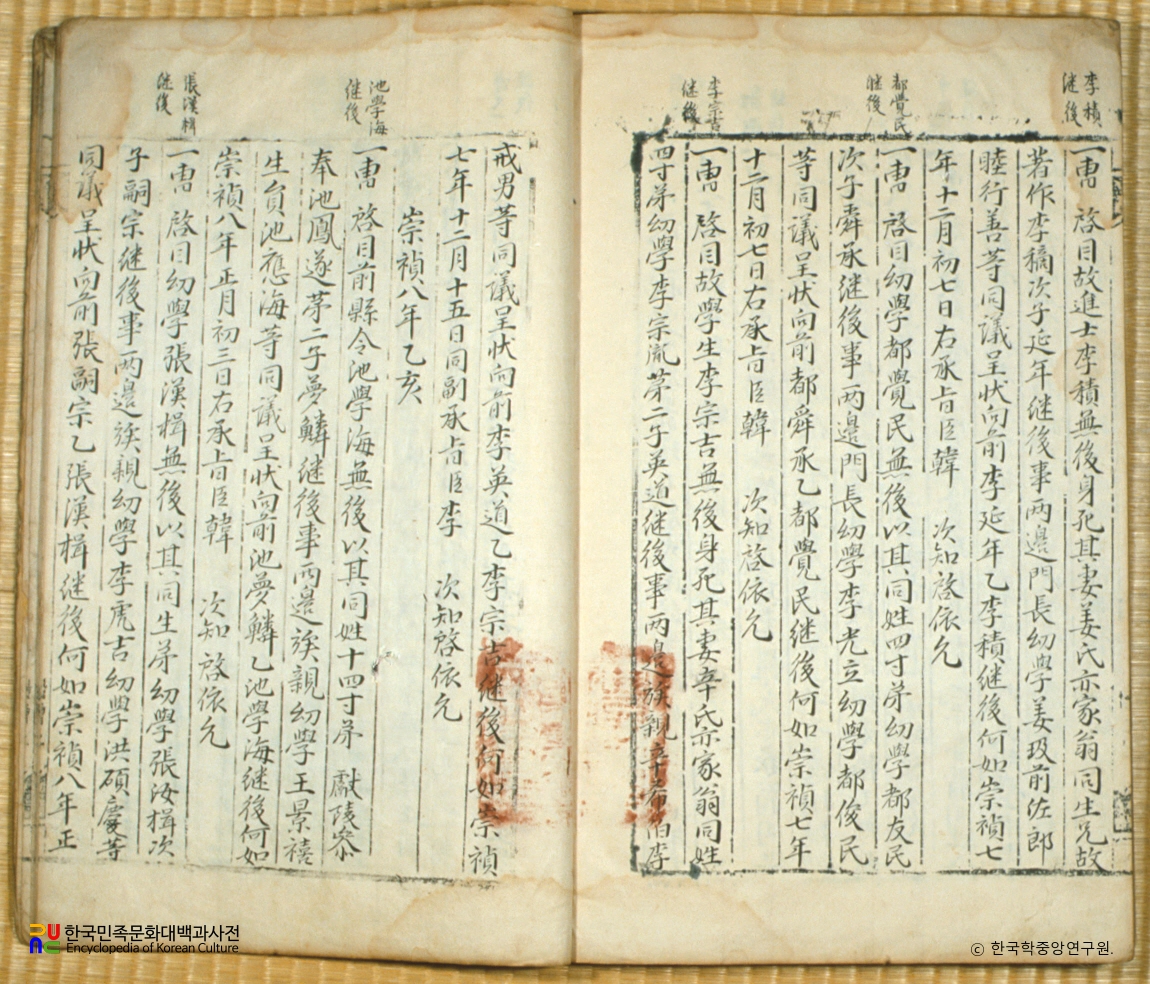 李積
継後
都覺民
継後
李宗吉
継後
一曺 啓目故進士李積無後身死其妻姜氏亦家翁同生兄故
著作李穧次子延年継後事両邊門長幼學姜玖前佐郎
睦行善等同議呈状向前李延年乙李積継後何如崇禎七
年十二月初七日右承旨臣韓 次知啓依允
一曺 啓目幼學都覺民無後以其同姓四寸弟幼學都友民
次子舜承継後事両邊門長幼學李光立幼學都俊民
等同議呈状向前都舜承乙都覺民継後何如崇禎七年
十二月初七日右承旨臣韓 次知啓依允
一曺 啓目故學生李宗吉無後身死其妻辛氏亦家翁同姓
四寸弟幼學李宗胤第二子英道継後事両邊族親辛希伯李
池學海
継後
張漢楫
継後
戒男等同議呈状向前李英道乙李宗吉継後何如崇禎
七年十二月十五日同副承旨臣李 次知啓依允
崇禎八年乙亥
一曺 啓目前縣令池學海無後以其同姓十四寸弟 獻陵參
奉池鳳遂第二子夢鱗継後事両邊族親幼學王景禧
生貟池應海等同議呈状向前池夢鱗乙池學海継後何如
崇禎八年正月初三日右承旨臣韓 次知啓依允
一曺 啓目幼學張漢楫無後以其同生弟幼學張汝楫次
子嗣宗継後事両邊族親幼學李虎吉幼學洪碩慶等
同議呈状向前張嗣宗乙張漢楫継後何如崇禎八年正
한국민족문화대백과사전
Encyclopedia of Korean Culture
ⓒ 한국학중앙연구원.